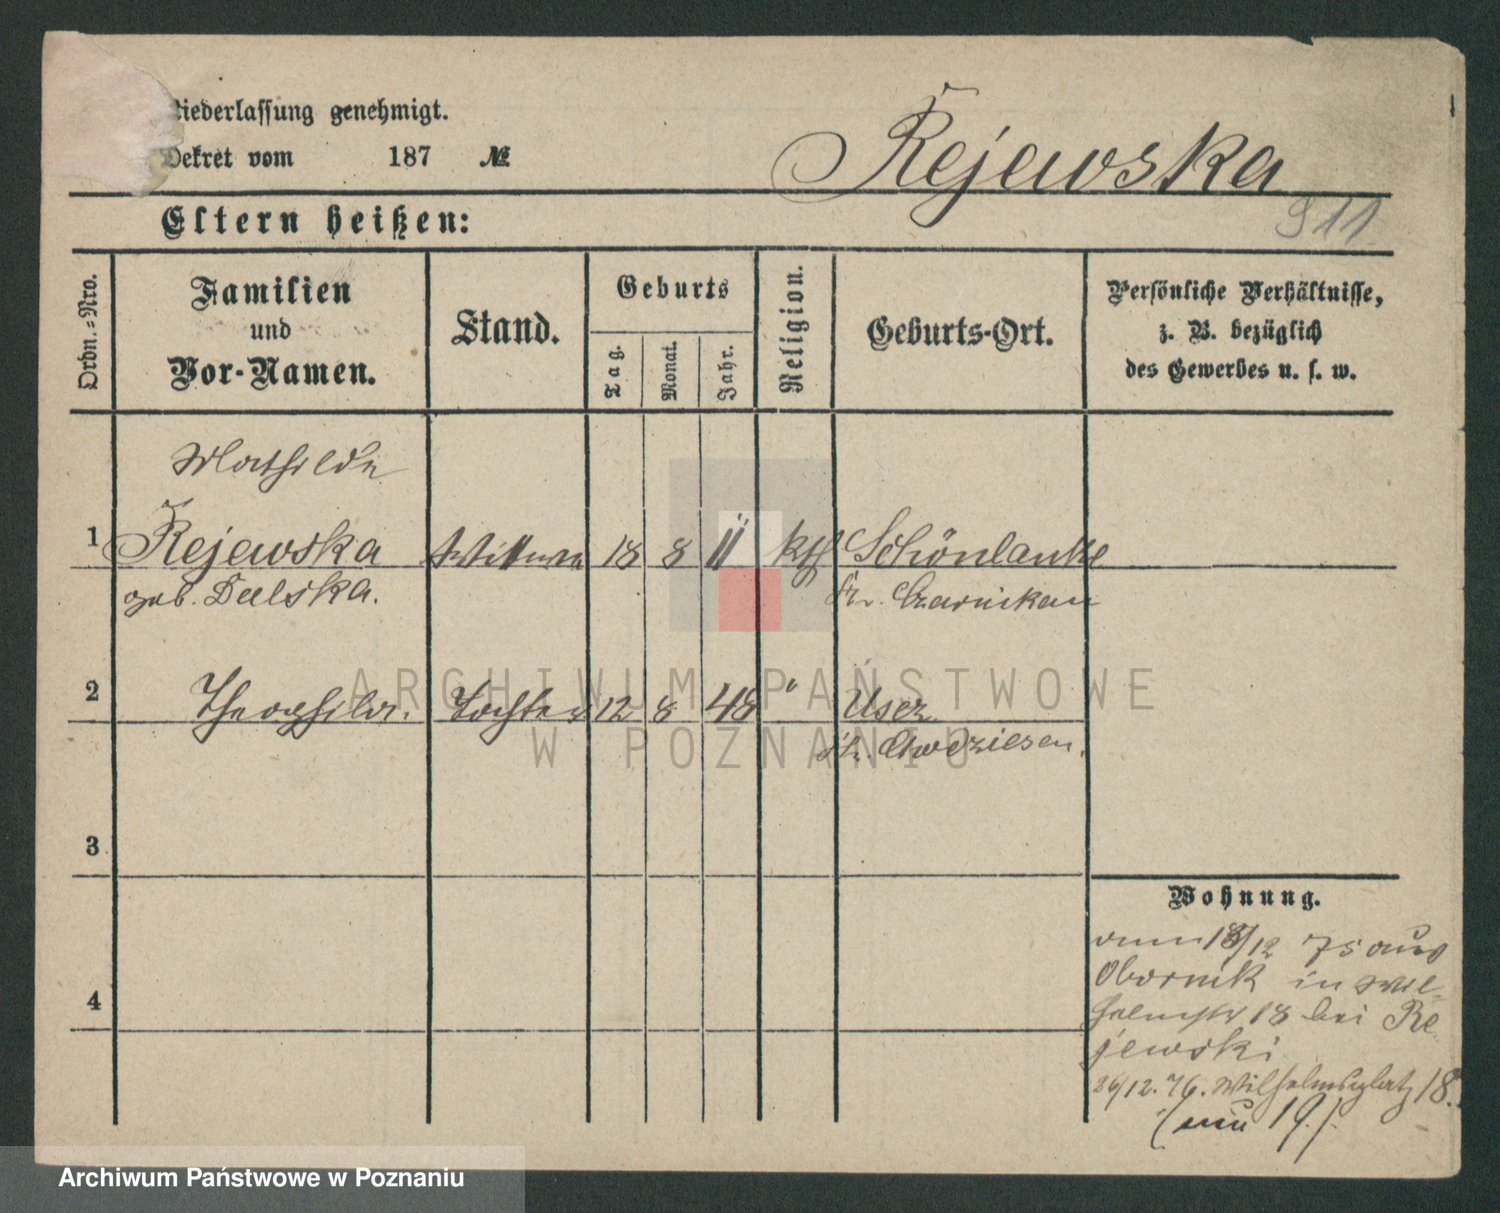 Niederlassung genehmigt.
Dekret vom 187 №
Rejewska
911
Eltern heißen:
Ordn.-Nro.
Familien
und
Vor-Namen.
Stand.
Geburts
Tag.
Monat.
Jahr.
Religion.
Geburts-Ort.
Persönliche Verhältnisse,
z. B. bezüglich
des Gewerbes u. s. w.
Mathilde
1 Rejewska Wittwe 18 8 11 kth Schönlanke
geb. Dulska. Kr. Czarnikau
2 Theophila. Tochter 12 8 48 " Usez
Kr. Chodziesen.
3
4
Wohnung.
vom 18/12 75 aus
Obornik in Wil-
helmstr 18 bei Re
jewski
26/12. 76. Wilhelmsplatz 18.
(neu 19.)
ARCHIWUM PAŃSTWOWE
W POZNANIU
Archiwum Państwowe w Poznaniu